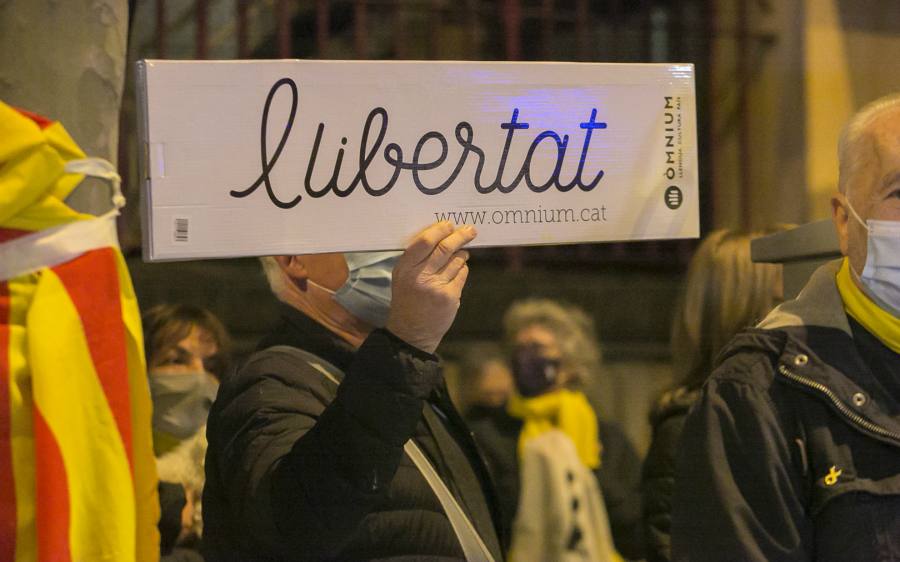 llibertat
www.omnium.cat
ÒMNIUM
LLENGUA CULTURA PAÍS